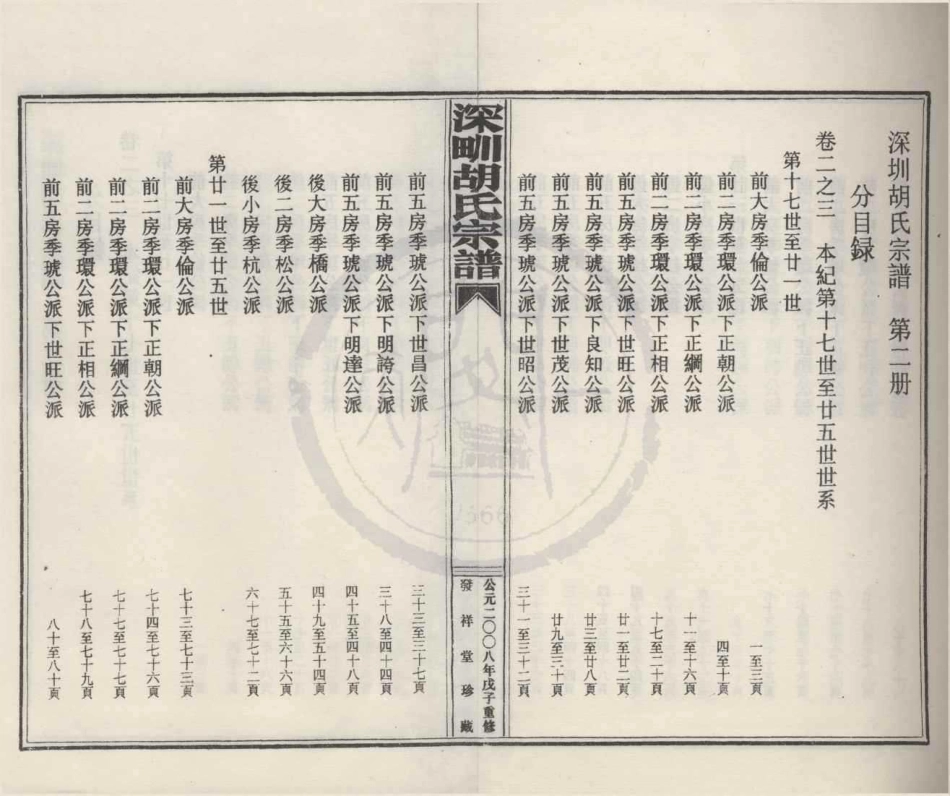 深圳胡氏宗譜 第二册
分目録
卷二之三 本紀第十七世至廿五世世系
第十七世至廿一世
前大房季倫公派 一至三頁
前二房季環公派下正朝公派 四至十頁
前二房季環公派下正綱公派 十一至十六頁
前二房季環公派下正相公派 十七至二十頁
前五房季琥公派下世旺公派 廿一至廿二頁
前五房季琥公派下良知公派 廿三至廿八頁
前五房季琥公派下世茂公派 廿九至三十頁
前五房季琥公派下世昭公派 三十一至三十二頁
深圳胡氏宗譜
公元二〇〇八年戊子重修
發祥堂珍藏
前五房季琥公派下世昌公派 三十三至三十七頁
前五房季琥公派下明誇公派 三十八至四十四頁
前五房季琥公派下明達公派 四十五至四十八頁
後大房季橋公派 四十九至五十四頁
後二房季松公派 五十五至六十六頁
後小房季杭公派 六十七至七十二頁
第廿一世至廿五世
前大房季倫公派 七十三至七十三頁
前二房季環公派下正朝公派 七十四至七十六頁
前二房季環公派下正綱公派 七十七至七十七頁
前二房季環公派下正相公派 七十八至七十九頁
前五房季琥公派下世旺公派 八十至八十頁
1566